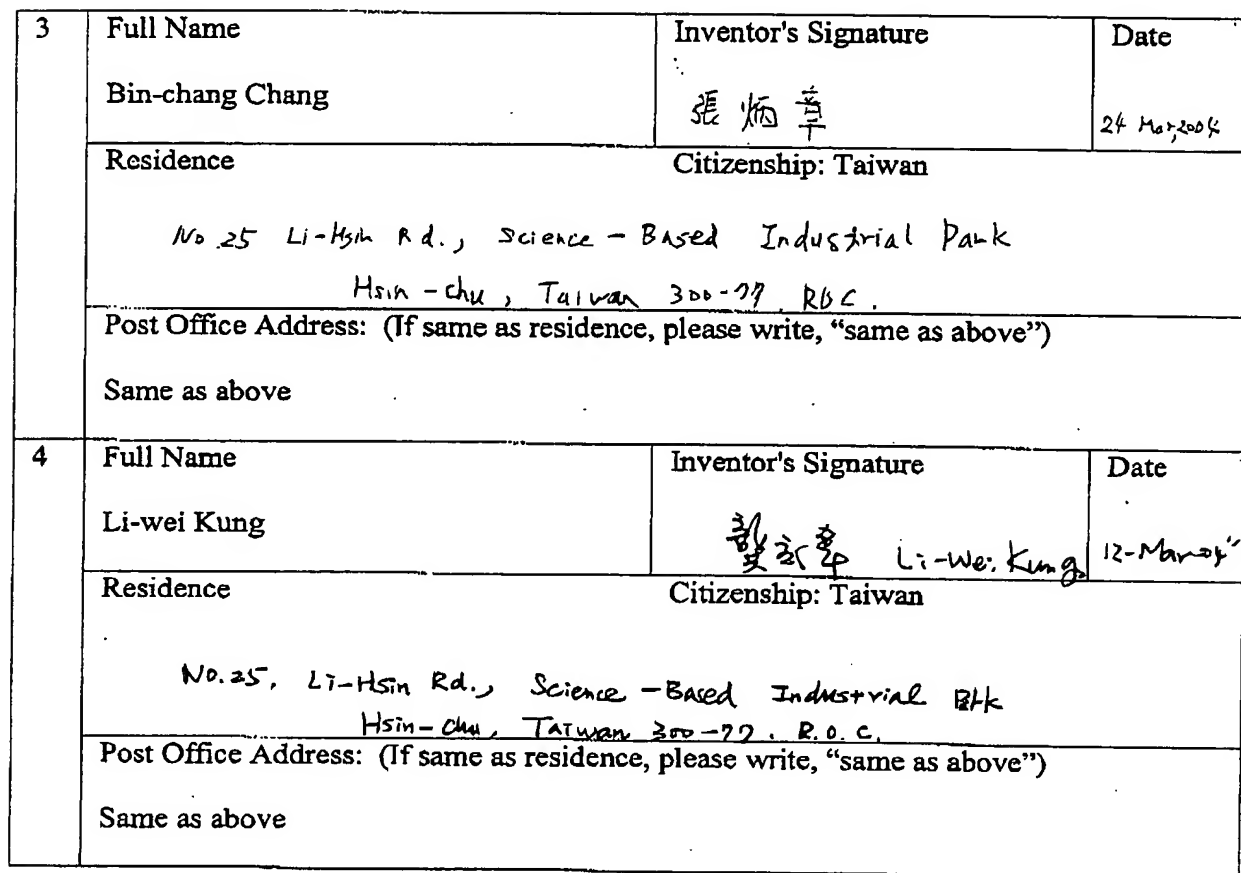 3 Full Name Inventor's Signature Date
Bin-chang Chang 張炳章 24 Mar, 2004
Residence Citizenship: Taiwan
No 25 Li-Hsin Rd., Science-Based Industrial Park
Hsin-chu, Taiwan 300-77. ROC.
Post Office Address: (If same as residence, please write, “same as above”)
Same as above
4 Full Name Inventor's Signature Date
Li-wei Kung Li-Wei Kung 12-Mar-04"
Residence Citizenship: Taiwan
No. 25, Li-Hsin Rd., Science-Based Industrial
Hsin-chu, Taiwan 300-77. R.O.C.
Post Office Address: (If same as residence, please write, “same as above”)
Same as above